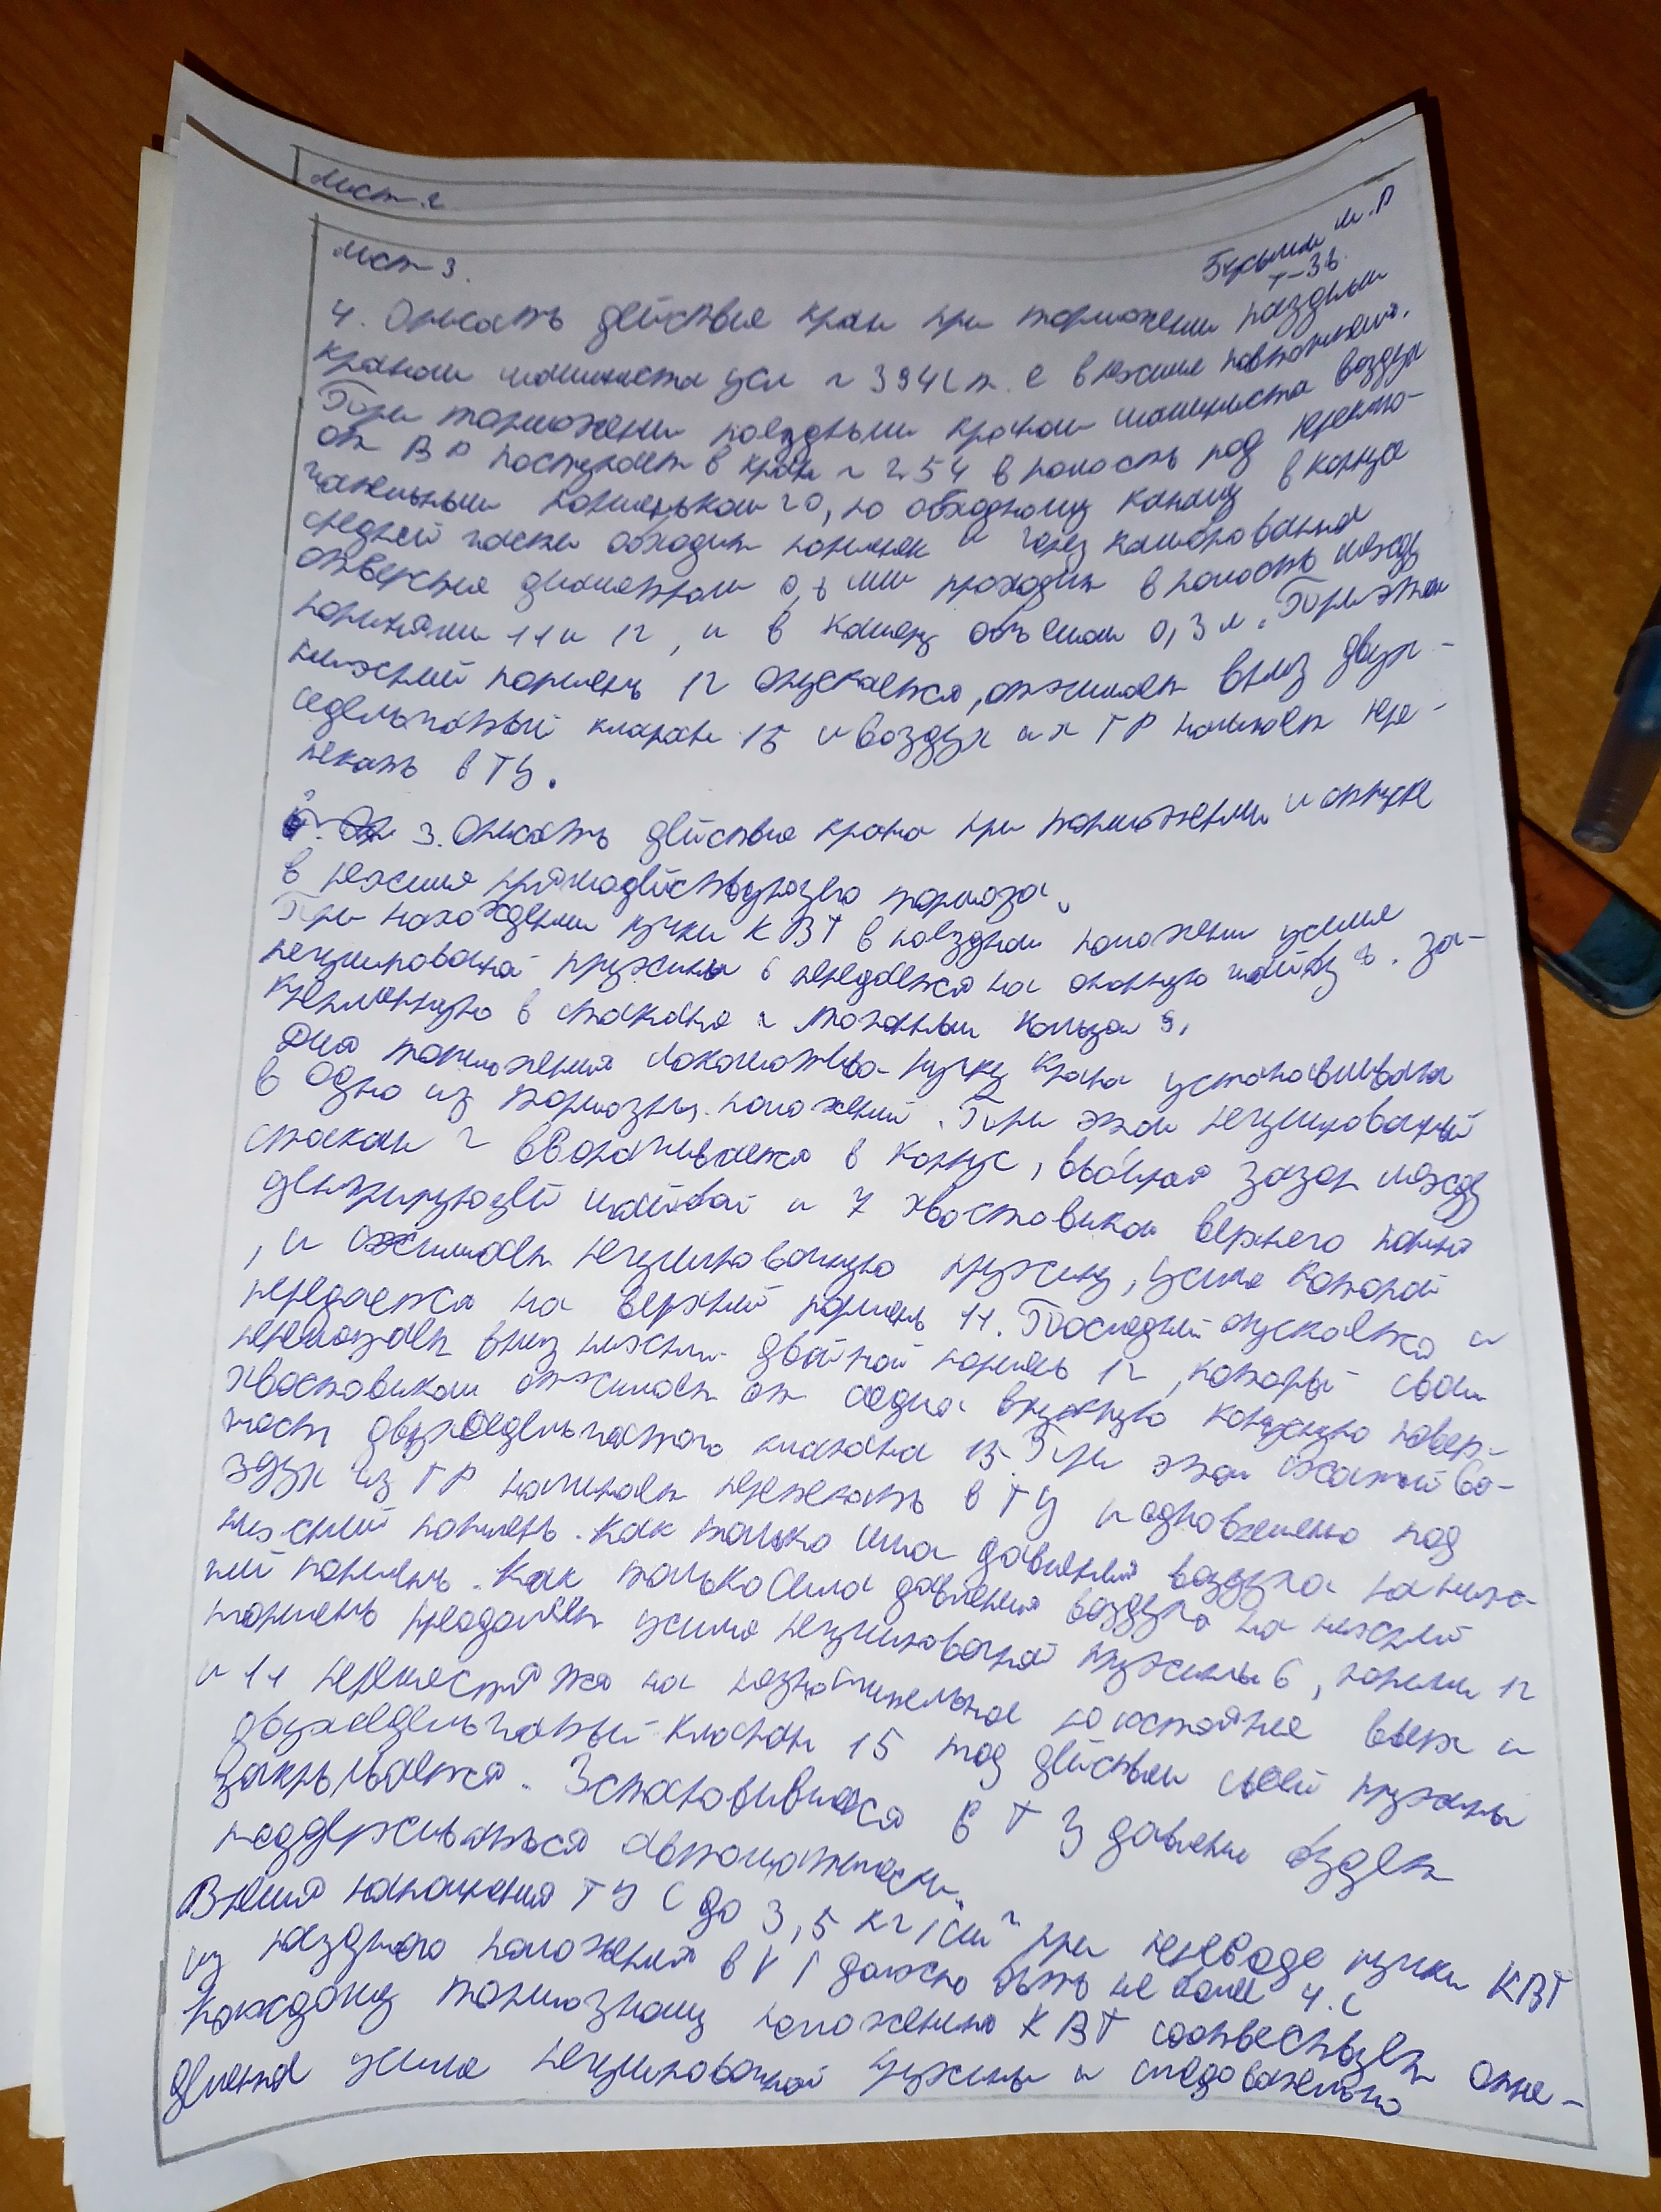 Лист 2
Лист 3.
М.А
Т-3в.
4. Описать действие кран при торможении поездным
краном машиниста усл n 394 в режиме повторителя.
При торможении поездным краном машиниста воздух
от ВР поступает в кран n 254 в полость под переклю-
чательным поршеньком 10, по обходному каналу в конца
средней части обходит поршнек и через калиброванная
отверстие диаметром 0,8 мм проходит в полость между
поршнями 11 и 12, и в камеру объемом 0,3 л. При этом
нижний поршень 12 опускается, отжимает вниз двух-
седельчатый клапан 15 и воздух из ГР начинает пере-
текать в ТЦ.
3. Описать действие крана при торможении и отпуске
в режиме прямодействующего тормоза.
При нахождении ручки КВТ в поездном положении усилие
регулировочной пружины 6 передается на опорную шайбу 8. за-
крепленную в стакане 2 стопорным кольцом 9.
Для торможения локомотива ручку крана устанавливают
в одно из тормозных положений. При этом регулировочный
стакан 2 вворачивается в корпус, выбирая зазор между
центрирующей шайбой и 7 хвостовиком верхнего поршня
, и сжимает регулировочную пружину, усилие которой
передается на верхний поршень 11. Последний опускается и
перемещает вниз нижний двойной поршень 12, который своим
хвостовиком отжимает от седла внутреннюю конусную повер-
ность двухседельчатого клапана 15. При этом сжатый во-
здух из ГР начинает перетекать в ТЦ и одновременно под
нижний поршень. Как только сила давления воздуха на ниж-
ний поршень. Как только сила давления воздуха на нижний
поршень преодолеет усилие регулировочной пружины 6, поршни 12
и 11 переместятся на незначительное расстояние вверх и
двухседельчатый клапан 15 под действием своей пружины
закрывается. Установившееся в ТЦ давление будет
поддерживаться автоматически.
Время наполнения ТЦ с до 3,5 кг/см² при переводе ручки КВТ
из поездного положения в VI должно быть не более 4.с
Каждому тормозному положению КВТ соответствует опре-
деленная усилие регулировочной пружины и следовательно